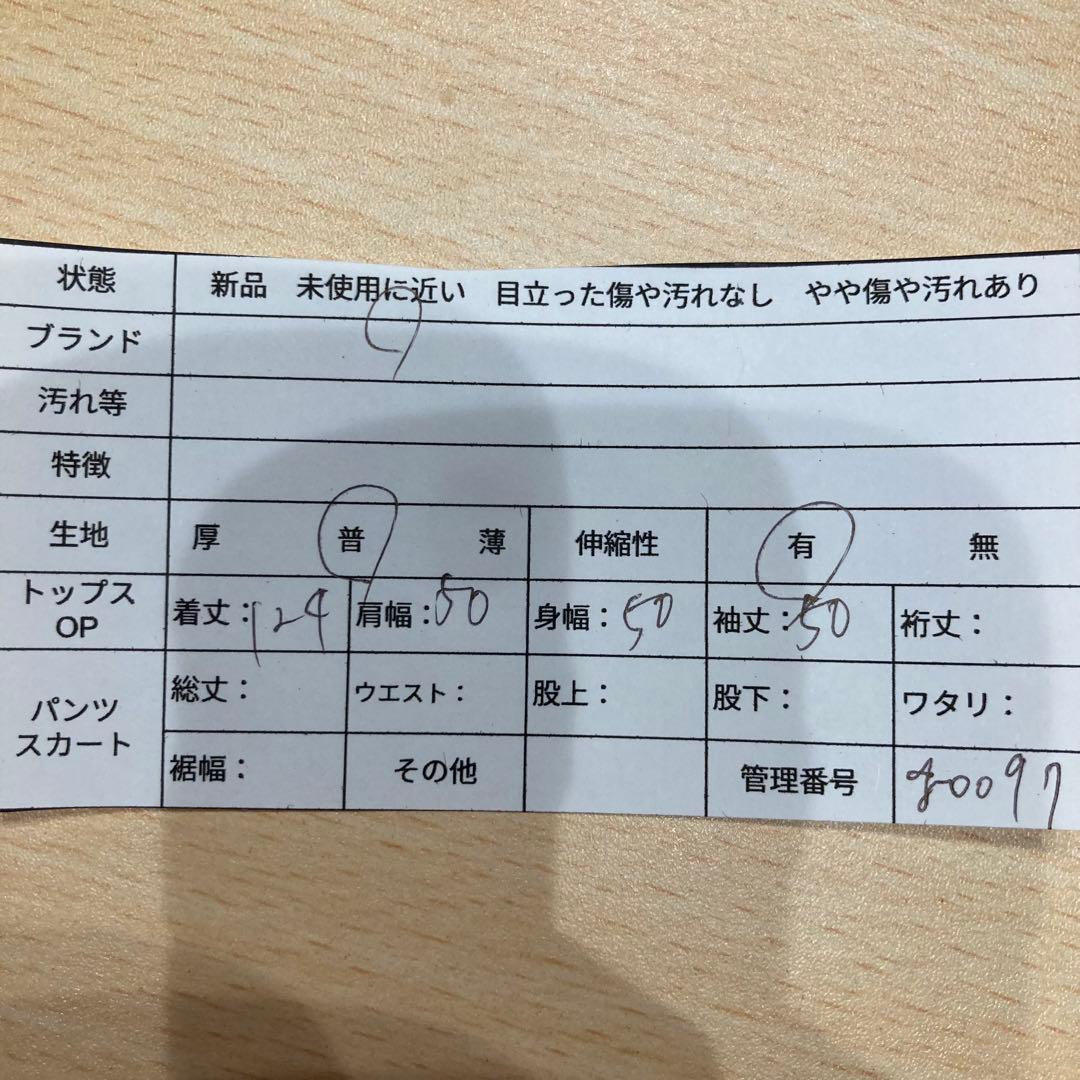 状態 新品 未使用に近い 目立った傷や汚れなし やや傷や汚れあり
ブランド
汚れ等
特徴
生地 厚 普 薄 伸縮性 有 無
トップス OP 着丈：124 肩幅：50 身幅：50 袖丈：50 裄丈：
パンツ スカート 総丈： ウエスト： 股上： 股下： ワタリ：
裾幅： その他 管理番号 0097